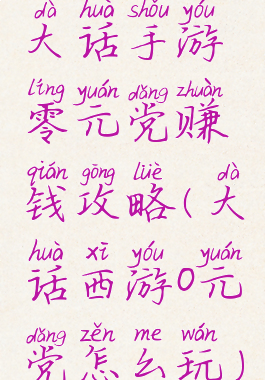 dà huà shǒu yóu
大话手游
líng yuán dǎng zhuàn
零元党赚
qián gōng lüè dà
钱攻略(大
huà xī yóu yuán
话西游0元
dǎng zěn me wán
党怎么玩)